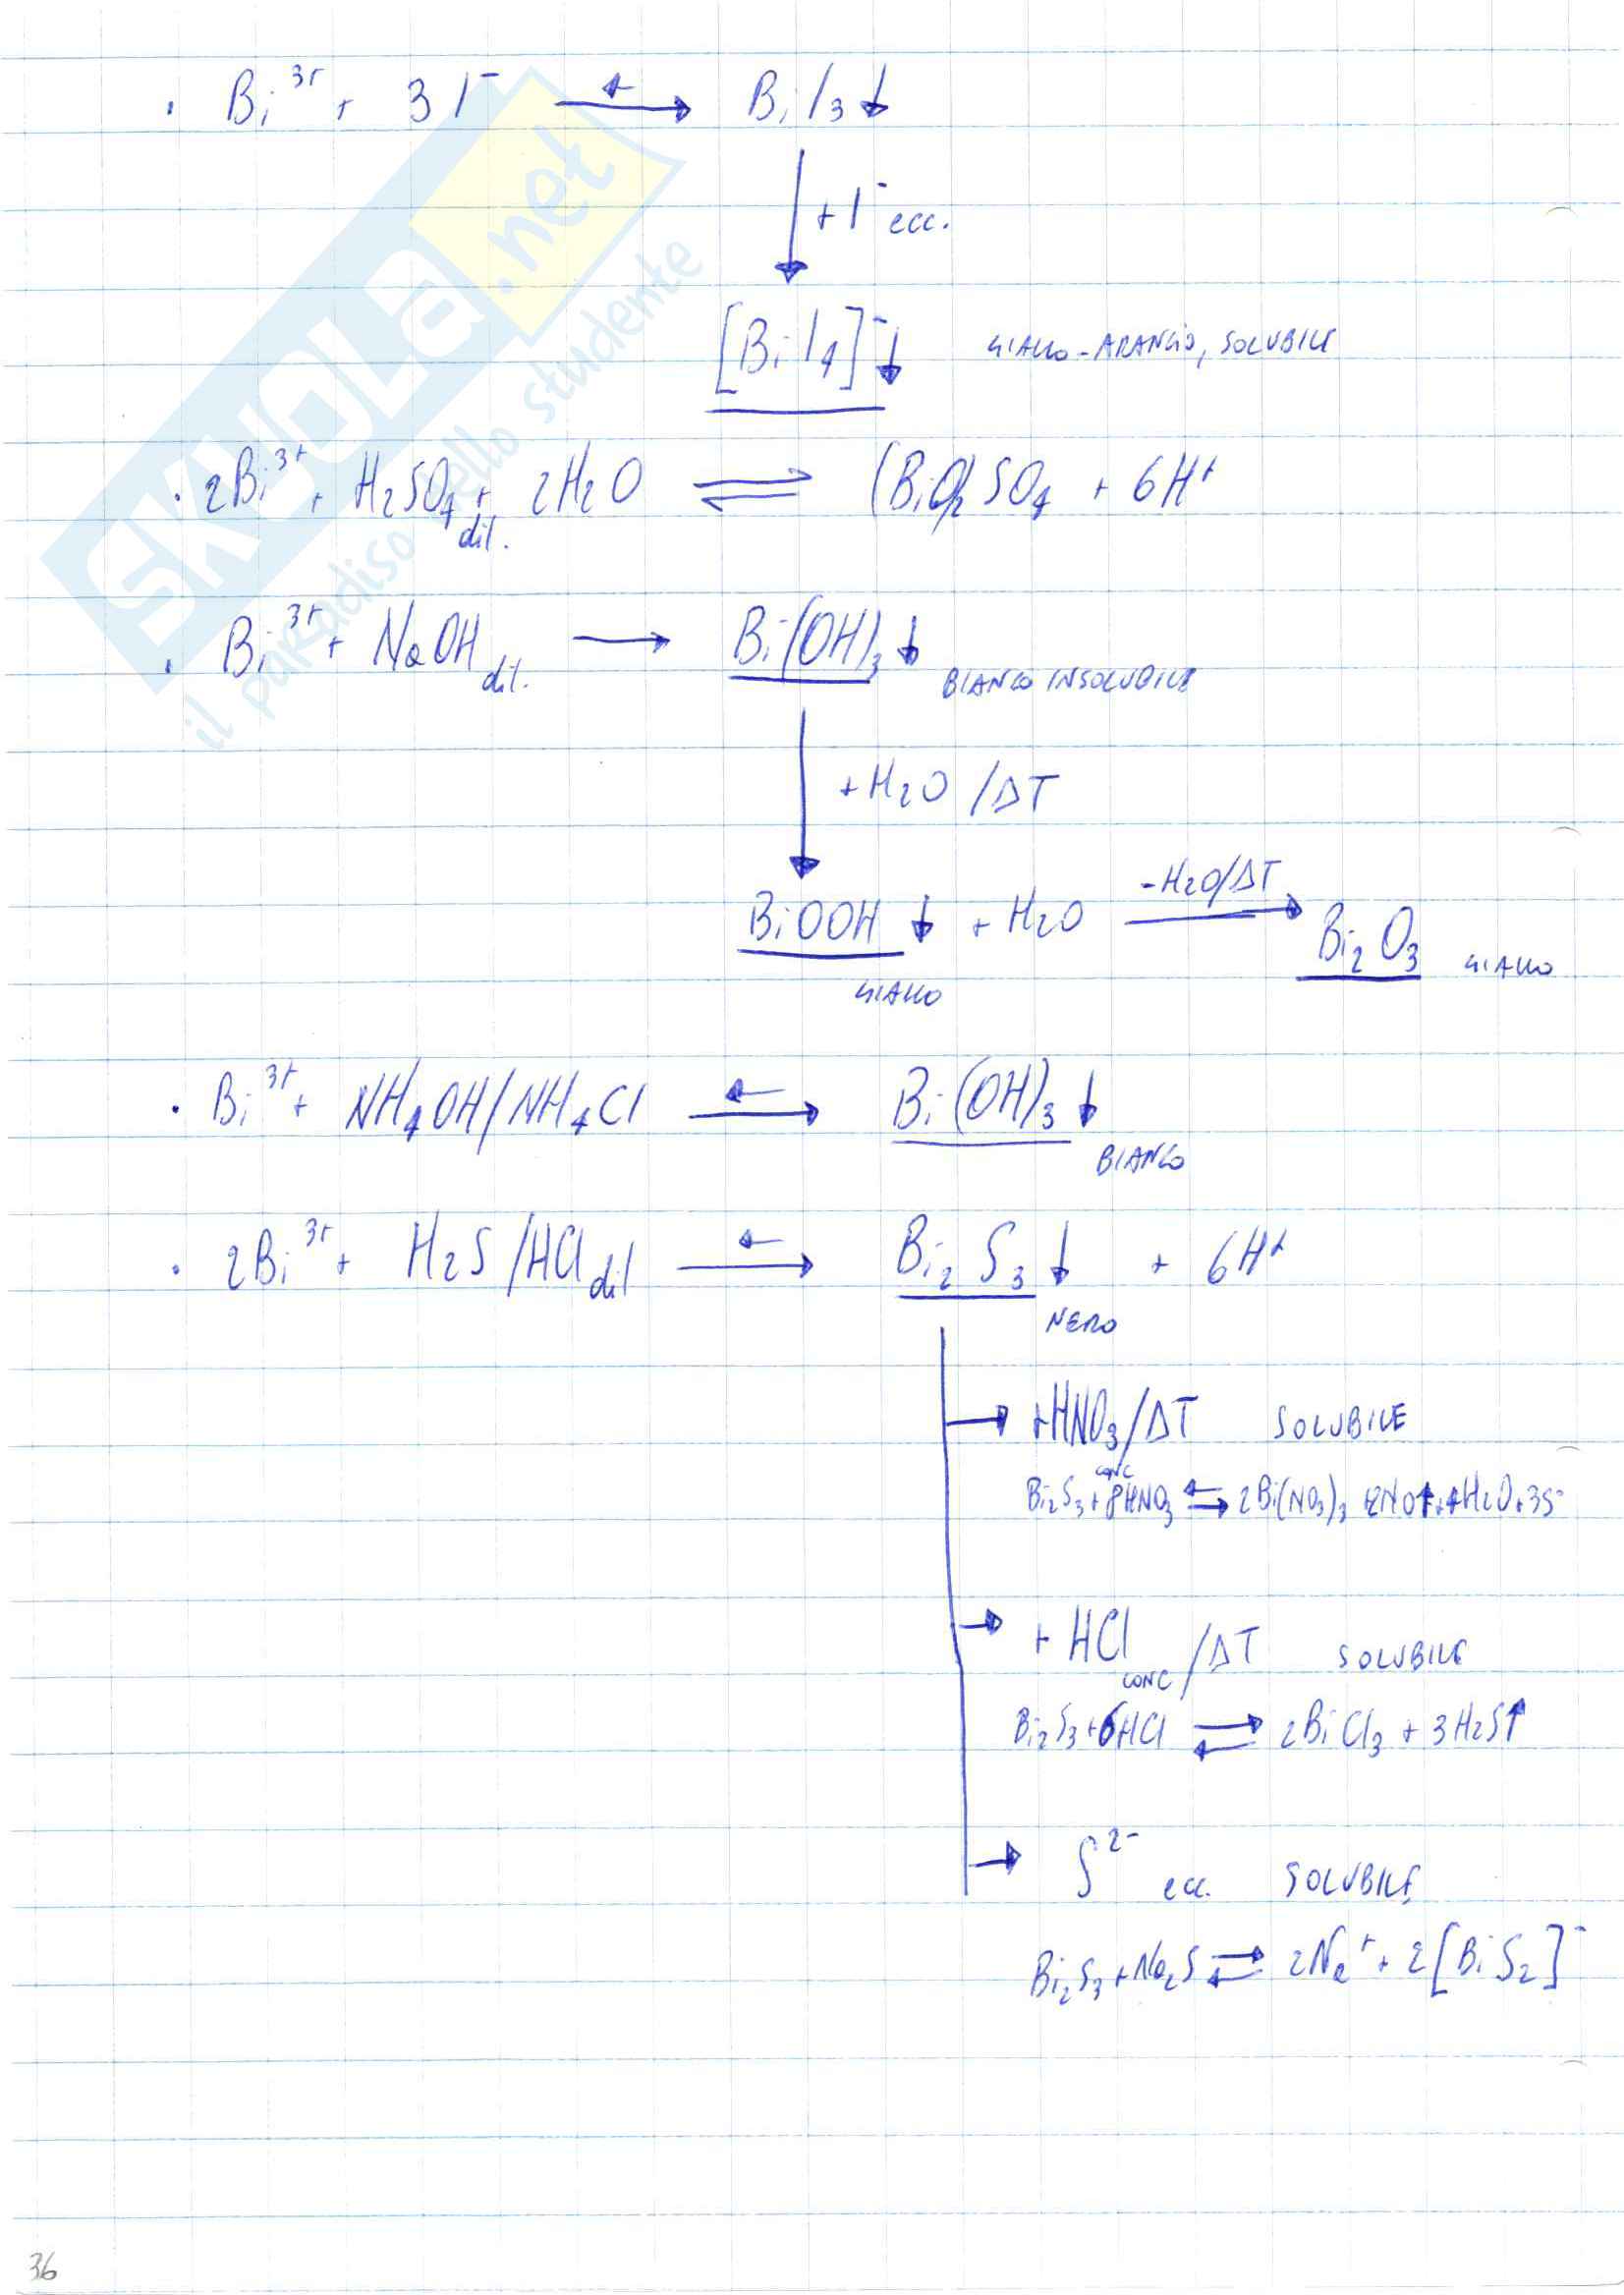 · Bi³⁺ + 3I⁻ ⇄ BiI₃↓
+I⁻ ecc.
[BiI₄]⁻↓ GIALLO-ARANCIO, SOLUBILE
· 2Bi³⁺ + H₂SO₄ dil. + 2H₂O ⇌ (BiO)₂SO₄ + 6H⁺
· Bi³⁺ + NaOH dil. → Bi(OH)₃↓ BIANCO INSOLUBILE
+H₂O/ΔT
BiOOH↓ + H₂O -H₂O/ΔT → Bi₂O₃ GIALLO
GIALLO
· Bi³⁺ + NH₄OH/NH₄Cl ⇄ Bi(OH)₃↓
BIANCO
· 2Bi³⁺ + H₂S/HCl dil ⇄ Bi₂S₃↓ + 6H⁺
NERO
→ +HNO₃ conc/ΔT SOLUBILE
Bi₂S₃+8HNO₃ ⇆ 2Bi(NO₃)₃ 2NO↑+4H₂O+3S
→ + HCl conc/ΔT SOLUBILE
Bi₂S₃+6HCl ⇌ 2BiCl₃ + 3H₂S↑
→ S²⁻ ecc. SOLUBILE
Bi₂S₃+Na₂S ⇌ 2Na⁺ + 2[BiS₂]⁻
36
SKUOLa.net
il paradiso dello studente